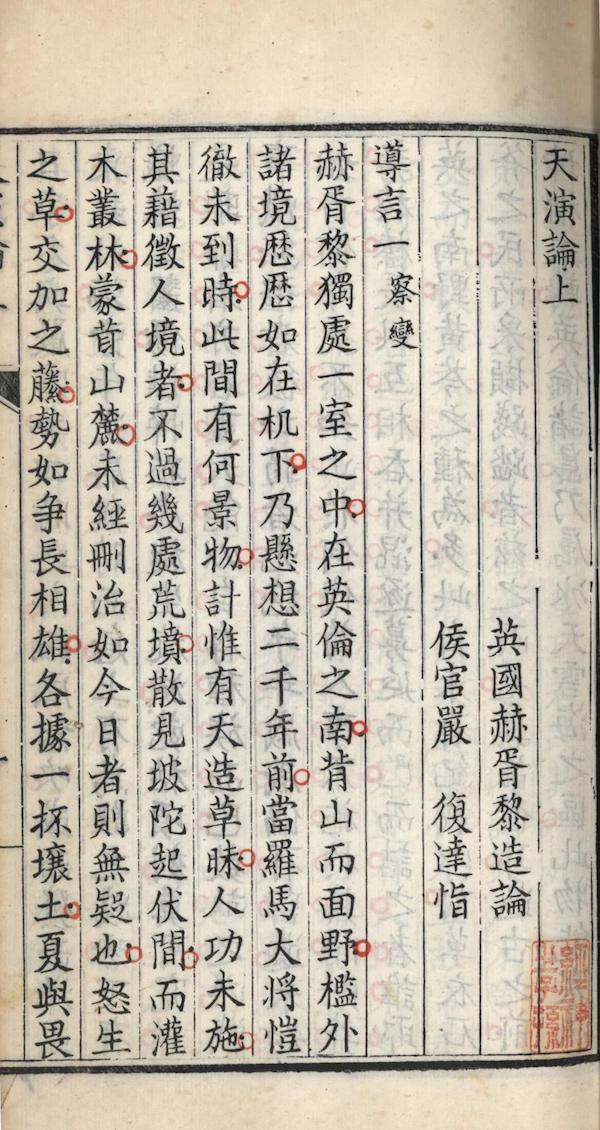 天演論上
英國赫胥黎造論
侯官嚴 復達恉
導言一 察變
赫胥黎獨處一室之中在英倫之南背山而面野檻外
諸境歷歷如在机下乃懸想二千年前當羅馬大將愷
徹未到時此間有何景物計惟有天造草昧人功未施
其藉徵人境者不過幾處荒墳散見坡陀起伏間而灌
木叢林蒙茸山麓未經刪治如今日者則無疑也怒生
之草交加之藤勢如爭長相雄各據一抔壤土夏與畏